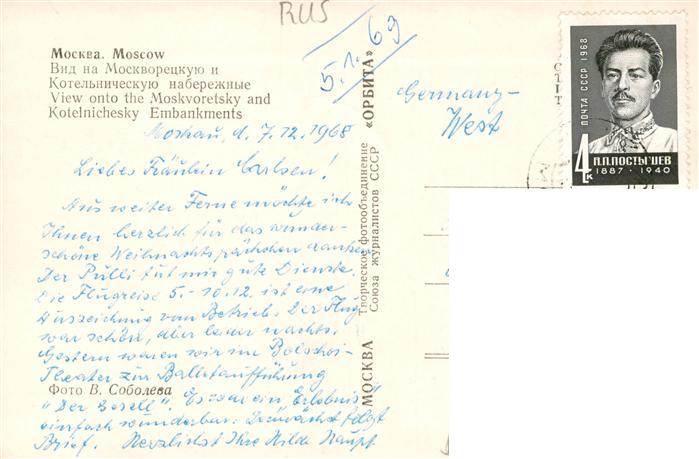 RUS
5.1.69
Москва. Moscow
Вид на Москворецкую и
Котельническую набережные
View onto the Moskvoretsky and
Kotelnichesky Embankments
Moskau, d. 7.12.1968
Liebes Fräulein Carlsen!
Aus weiter Ferne möchte ich
Ihnen herzlich für das wunder-
schöne Weihnachtspäckchen danken.
Der Pulli tut mir gute Dienste.
Die Flugreise 5.-10.12. ist eine
Auszeichnung vom Betrieb. Der Flug
war schön, aber leider nachts.
Gestern waren wir im Bolschoi-
Theater zur Ballettaufführung
Фото В. Соболева
"Der Gesell". Es war ein Erlebnis
einfach wunderbar. Demnächst folgt
Brief. Herzlichst Ihre Hilde Haupt
МОСКВА «ОРБИТА»
Творческое фотообъединение
Союза журналистов СССР
Germany-
West
ПОЧТА СССР 1968
4к
П.П.ПОСТЫШЕВ
1887 · 1940